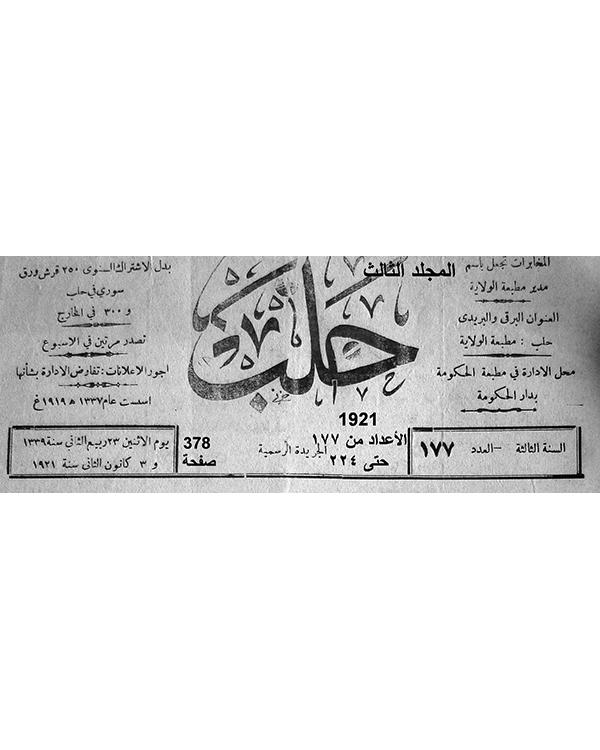 المجلد الثالث
المخابرات تجعل باسم
مدير مطبعة الولاية
العنوان البرقى والبريدى
حلب : مطبعة الولاية
محل الادارة في مطبعة الحكومة
بدار الحكومة
حلب
بدل الاشتراك السنوى ٢٥٠ قرش ورق
سوري في حلب
و ٣٠٠ في الخارج
تصدر مرتين في الاسبوع
اجور الاعلانات : تفاوض الادارة بشأنها
اسست عام ١٣٣٧ ه ١٩١٩ غ
1921
السنة الثالثة – العدد ١٧٧
الأعداد من ١٧٧
حتى ٢٢٤
الجريدة الرسمية
378
صفحة
يوم الاثنين ٢٣ ربيع الثانى سنة ١٣٣٩
و ٣ كانون الثانى سنة ١٩٢١